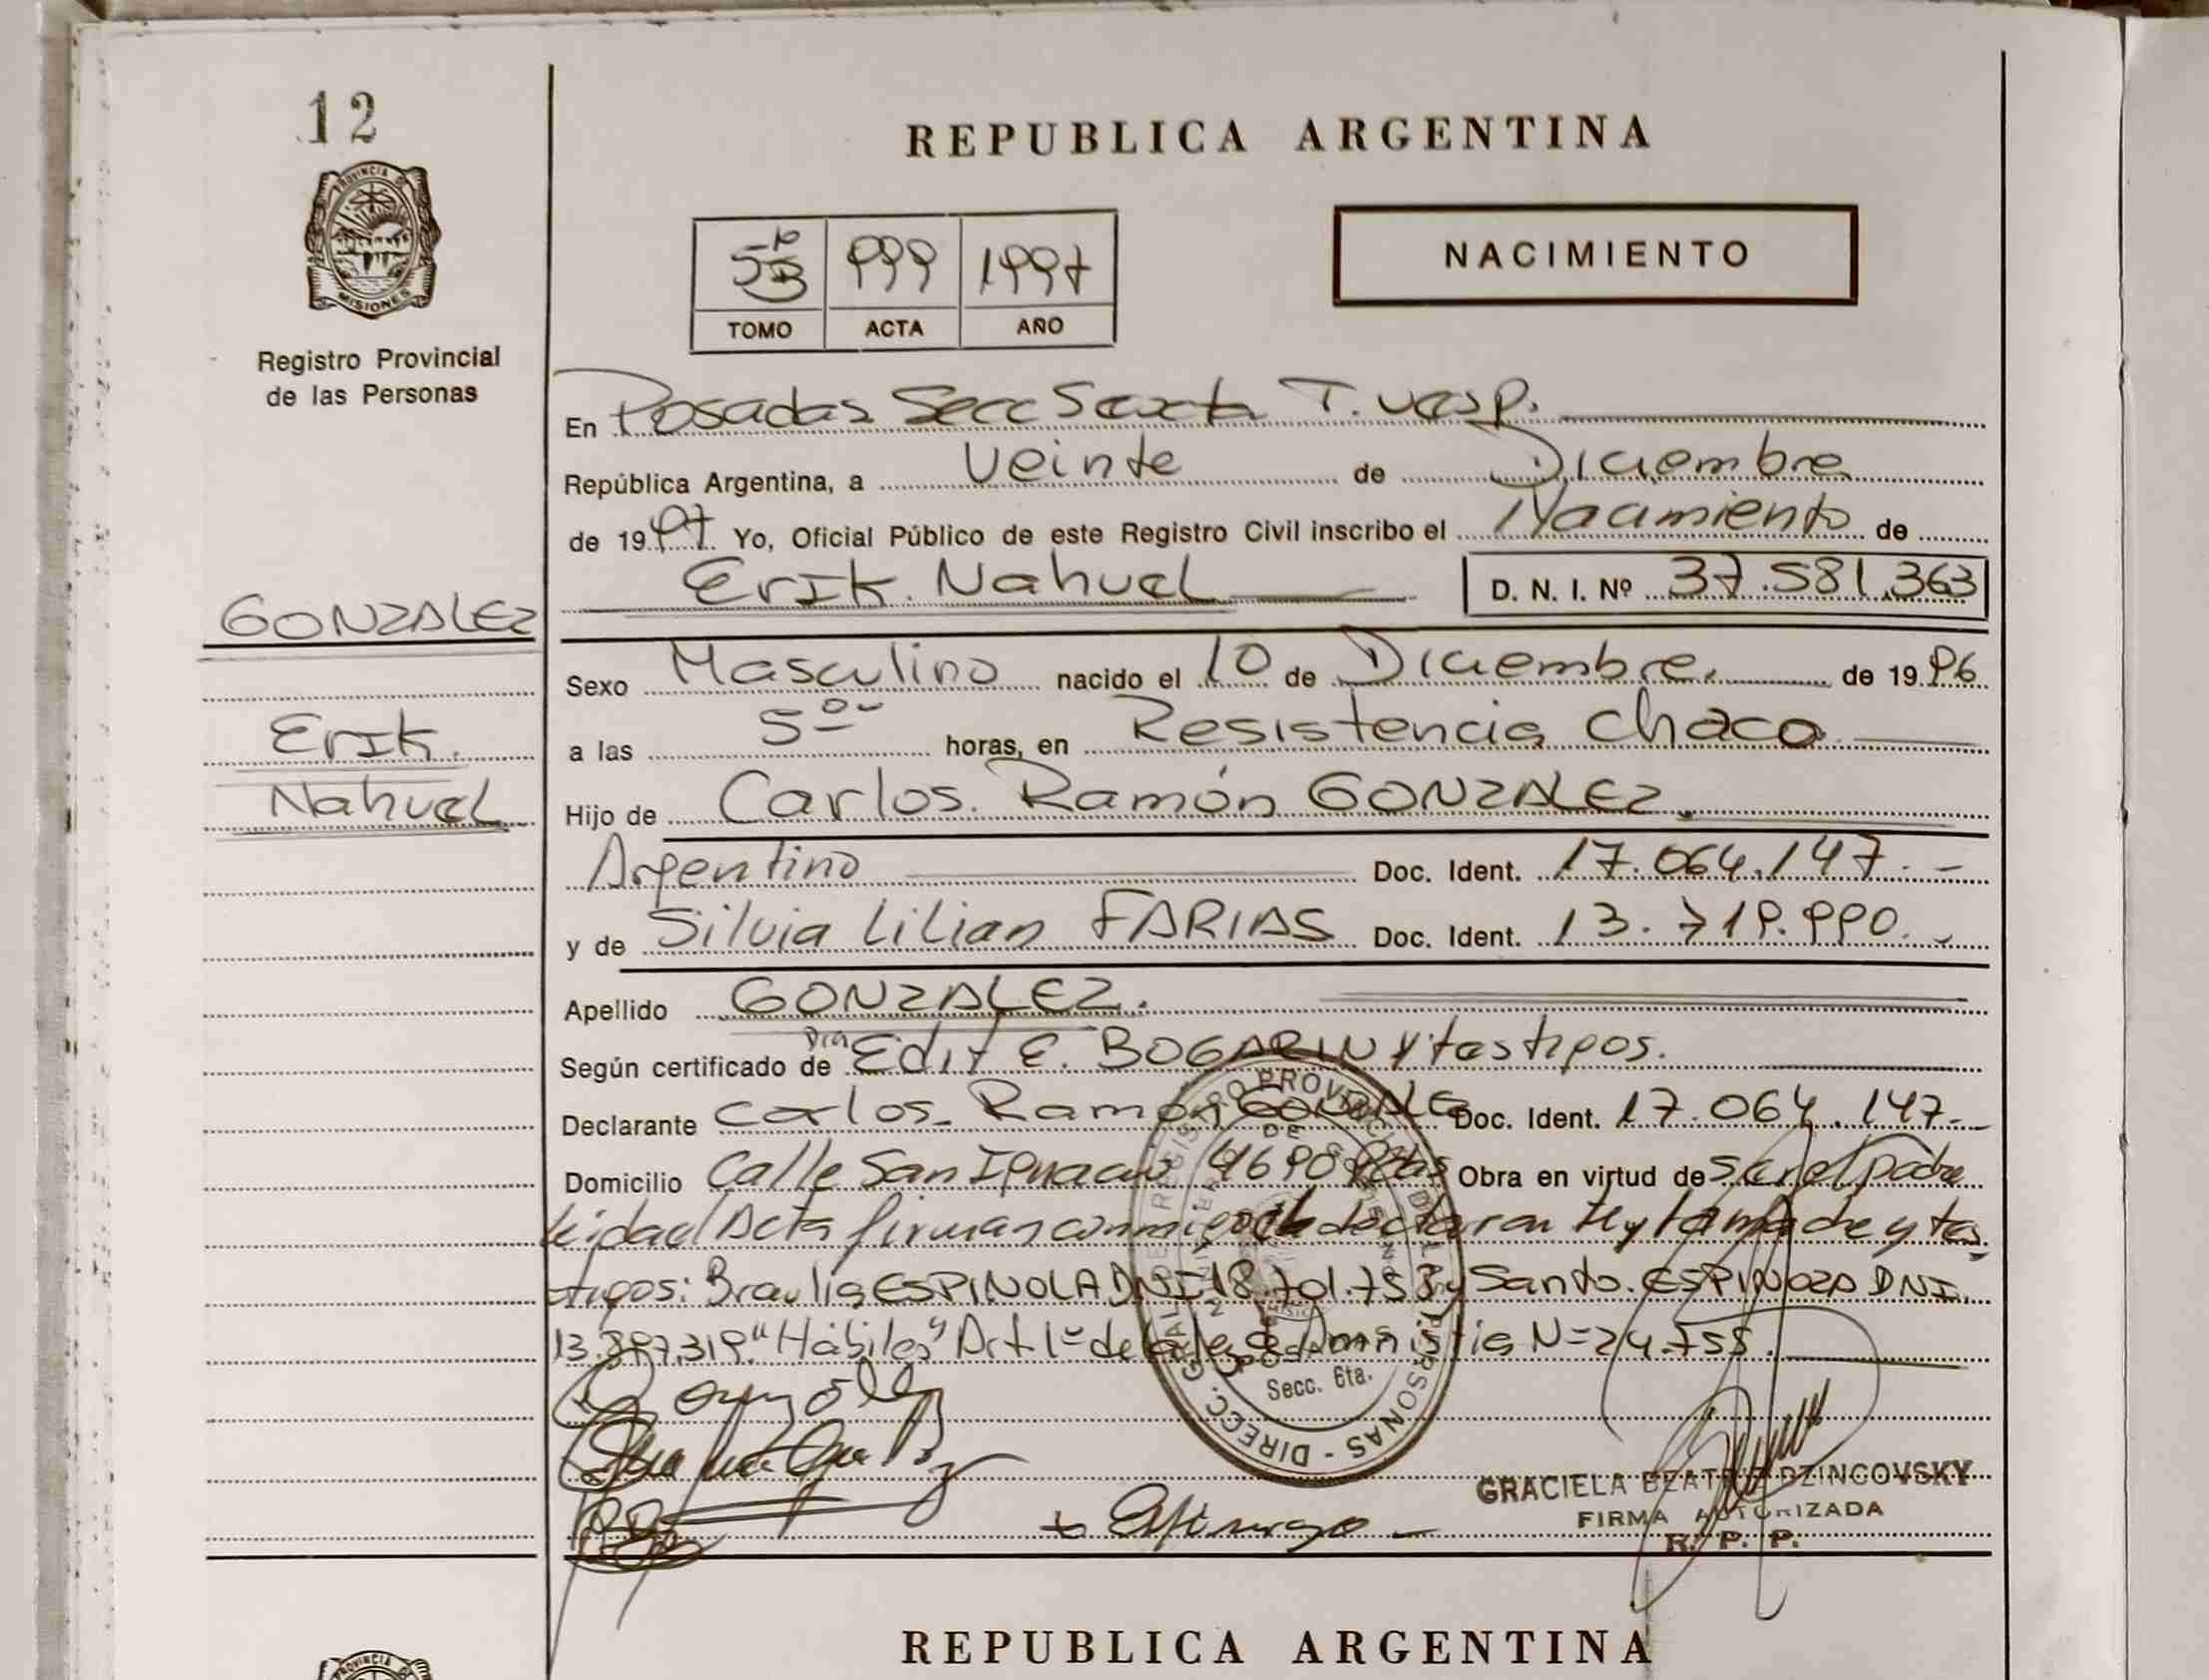 12
REPUBLICA ARGENTINA
PROVINCIA DE
MISIONES
Registro Provincial
de las Personas
5to B 999 1997
TOMO ACTA AÑO
NACIMIENTO
En Posadas Secc Sexta T. vesp.
República Argentina, a Veinte de Diciembre
de 1997 Yo, Oficial Público de este Registro Civil inscribo el Nacimiento de
Erik Nahuel D. N. I. Nº 37.581.363
GONZALEZ
Erik
Nahuel
Sexo Masculino nacido el 10 de Diciembre de 1996
a las 5 horas, en Resistencia Chaco
Hijo de Carlos Ramón GONZALEZ
Argentino Doc. Ident. 17.064.147.-
y de Silvia Lilian FARIAS Doc. Ident. 13.719.990.
Apellido GONZALEZ.
Según certificado de Dra Edit E. BOGARIN y testigos.
Declarante Carlos Ramón GONZALEZ Doc. Ident. 17.064.147.-
Domicilio Calle San Ignacio 4690 Pdas Obra en virtud de ser el padre
Leida el Acta firman conmigo el declarante y la madre y tes
tigos: Braulia ESPINOLA DNI 18.701.75 y Santo ESPINOZA DNI
13.897.319. "Hábiles" Art 1º de la ley de Amnistia Nº 24.755.
REGISTRO PROVINCIAL DE LAS PERSONAS - DIRECC. GRAL.
Secc. 6ta.
GRACIELA BEATRIZ DZINCOVSKY
FIRMA AUTORIZADA
R. P. P.
REPUBLICA ARGENTINA